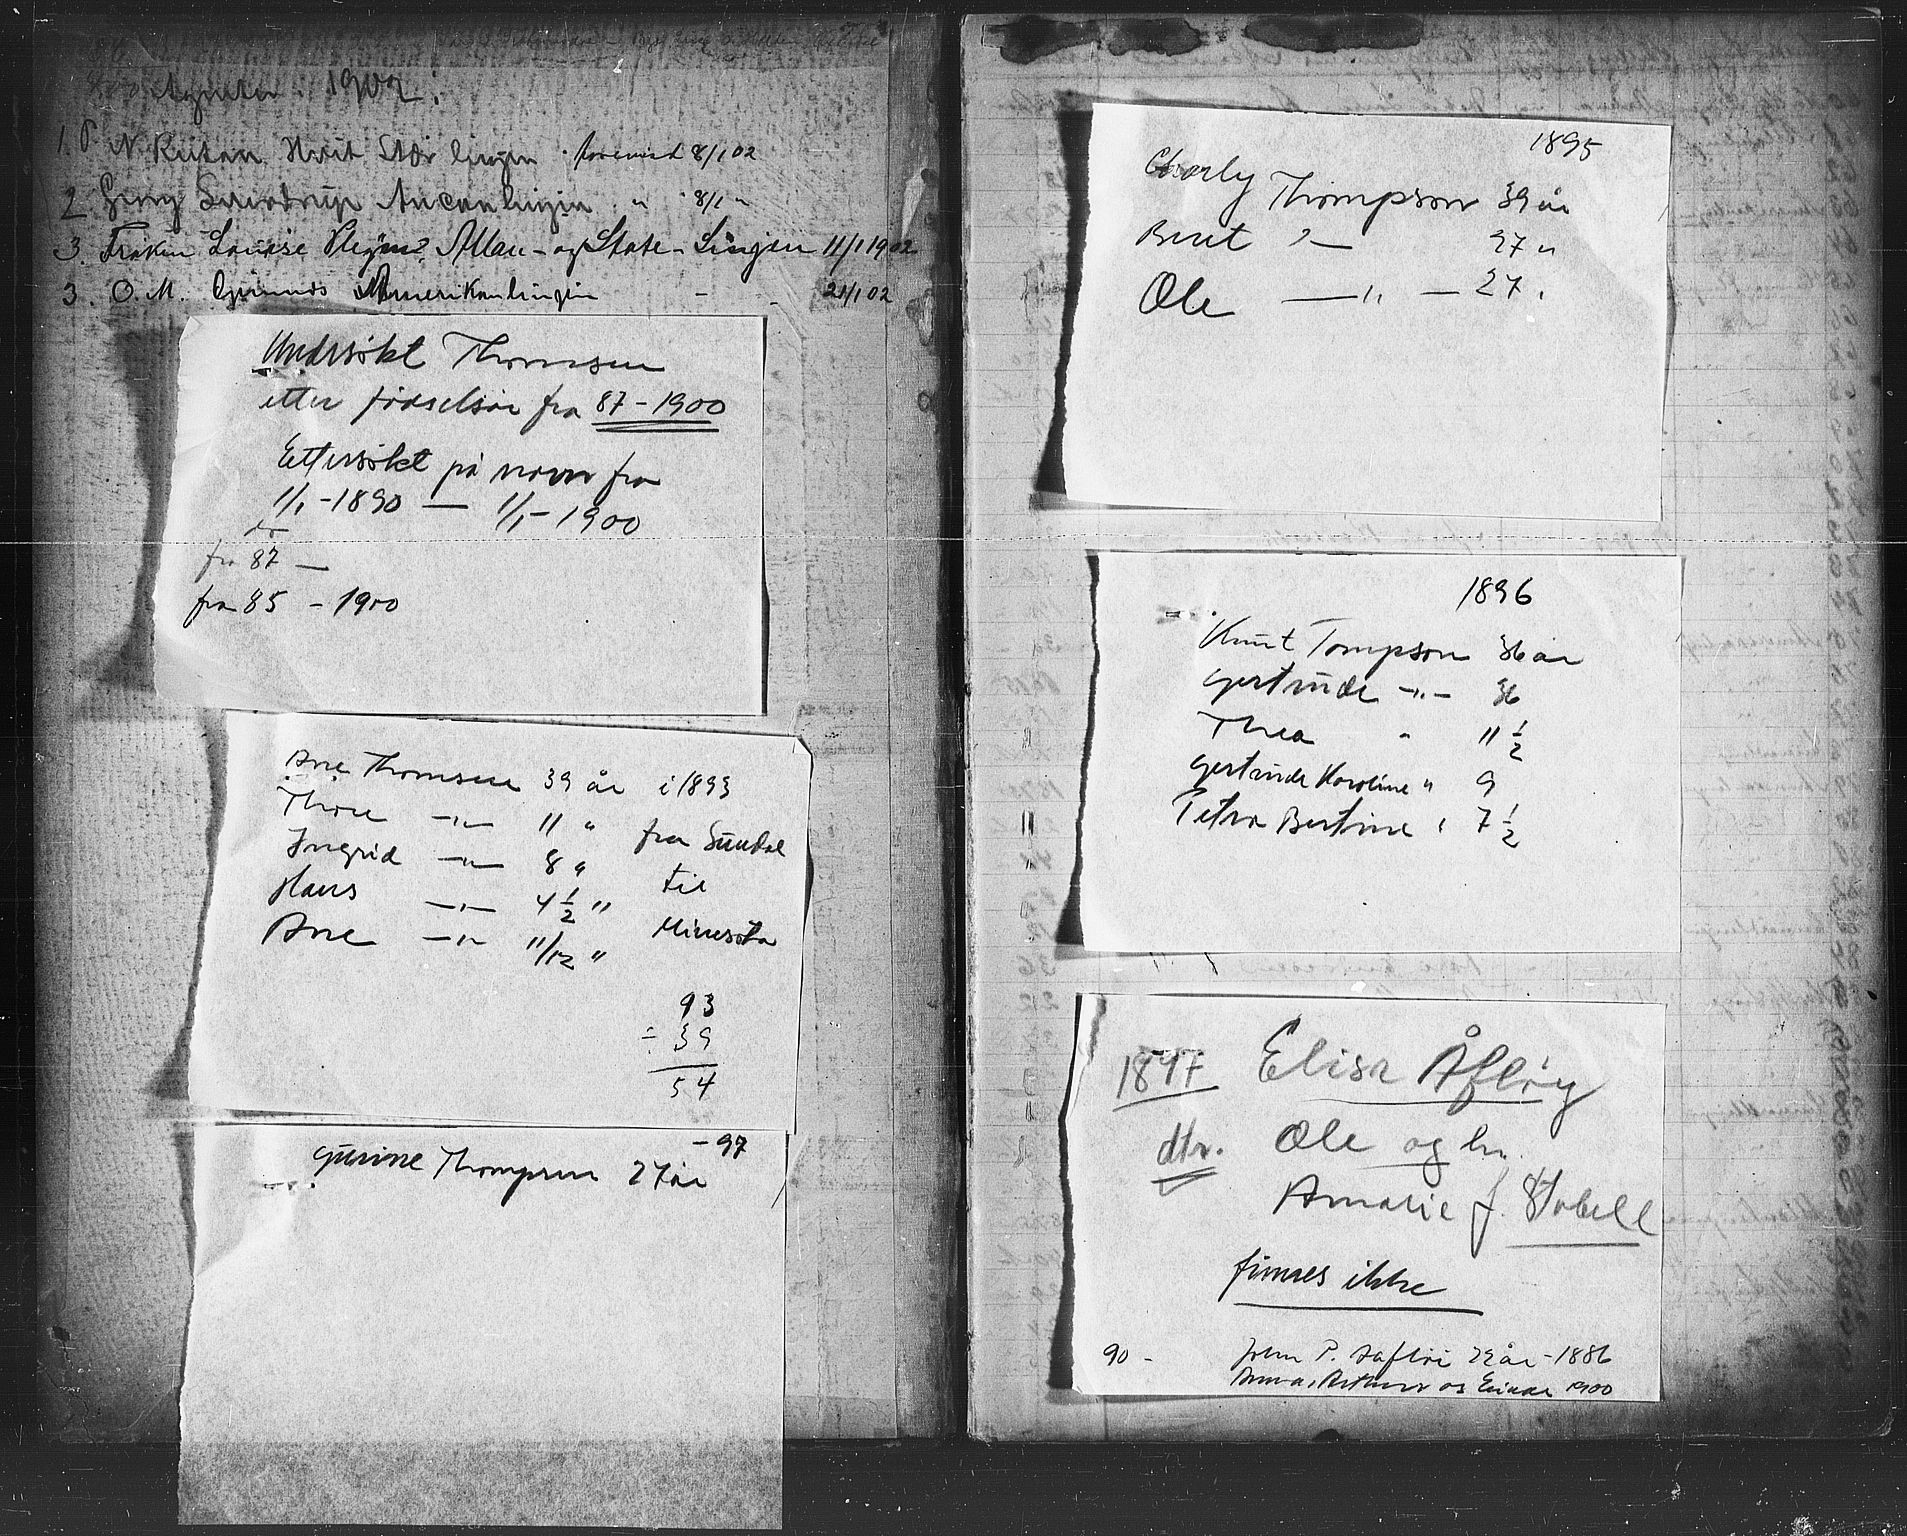 Agenter 1902.
1. P. N. Hvit Stær linjen 8/1 02
2 Georg Sverdrup linjen " 8/1 "
3. Frøken Louise Allan - og State - Linjen 11/1 1902
3. O. M. Amerikanlinjen - - 21/1 02
Undersøkt Thomsen
etter fødselsår fra 87 - 1900
Ettersøkt på navn fra
1/1 - 1890 — 1/1 - 1900
fra 87 —
fra 85 - 1900
Ane Thomsen 39 år i 1893
Thore —"— 11 " fra Sundal
Ingrid —"— 8 " til
Hans —"— 4 1/2 " Minesota
Ane —"— 11/12 "
93
÷ 39
54
- 97
Gurine Thompson 27 år
1895
Charly Thompson 39 år
Beret "— 27 "
Ole —"— 27 "
1896
Knut Tompson 36 år
Gertrude —"— 36
Thea " 11 1/2
Gertrude Karoline " 9
Petra Bertine " 7 1/2
1897 Elisa Åfløy
dtr. Ole og hu.
Anmarie f. Stobell
finnes ikke
90 - John P. Aafløi 22 år - 1886
Anna, Arthur og Einar 1900